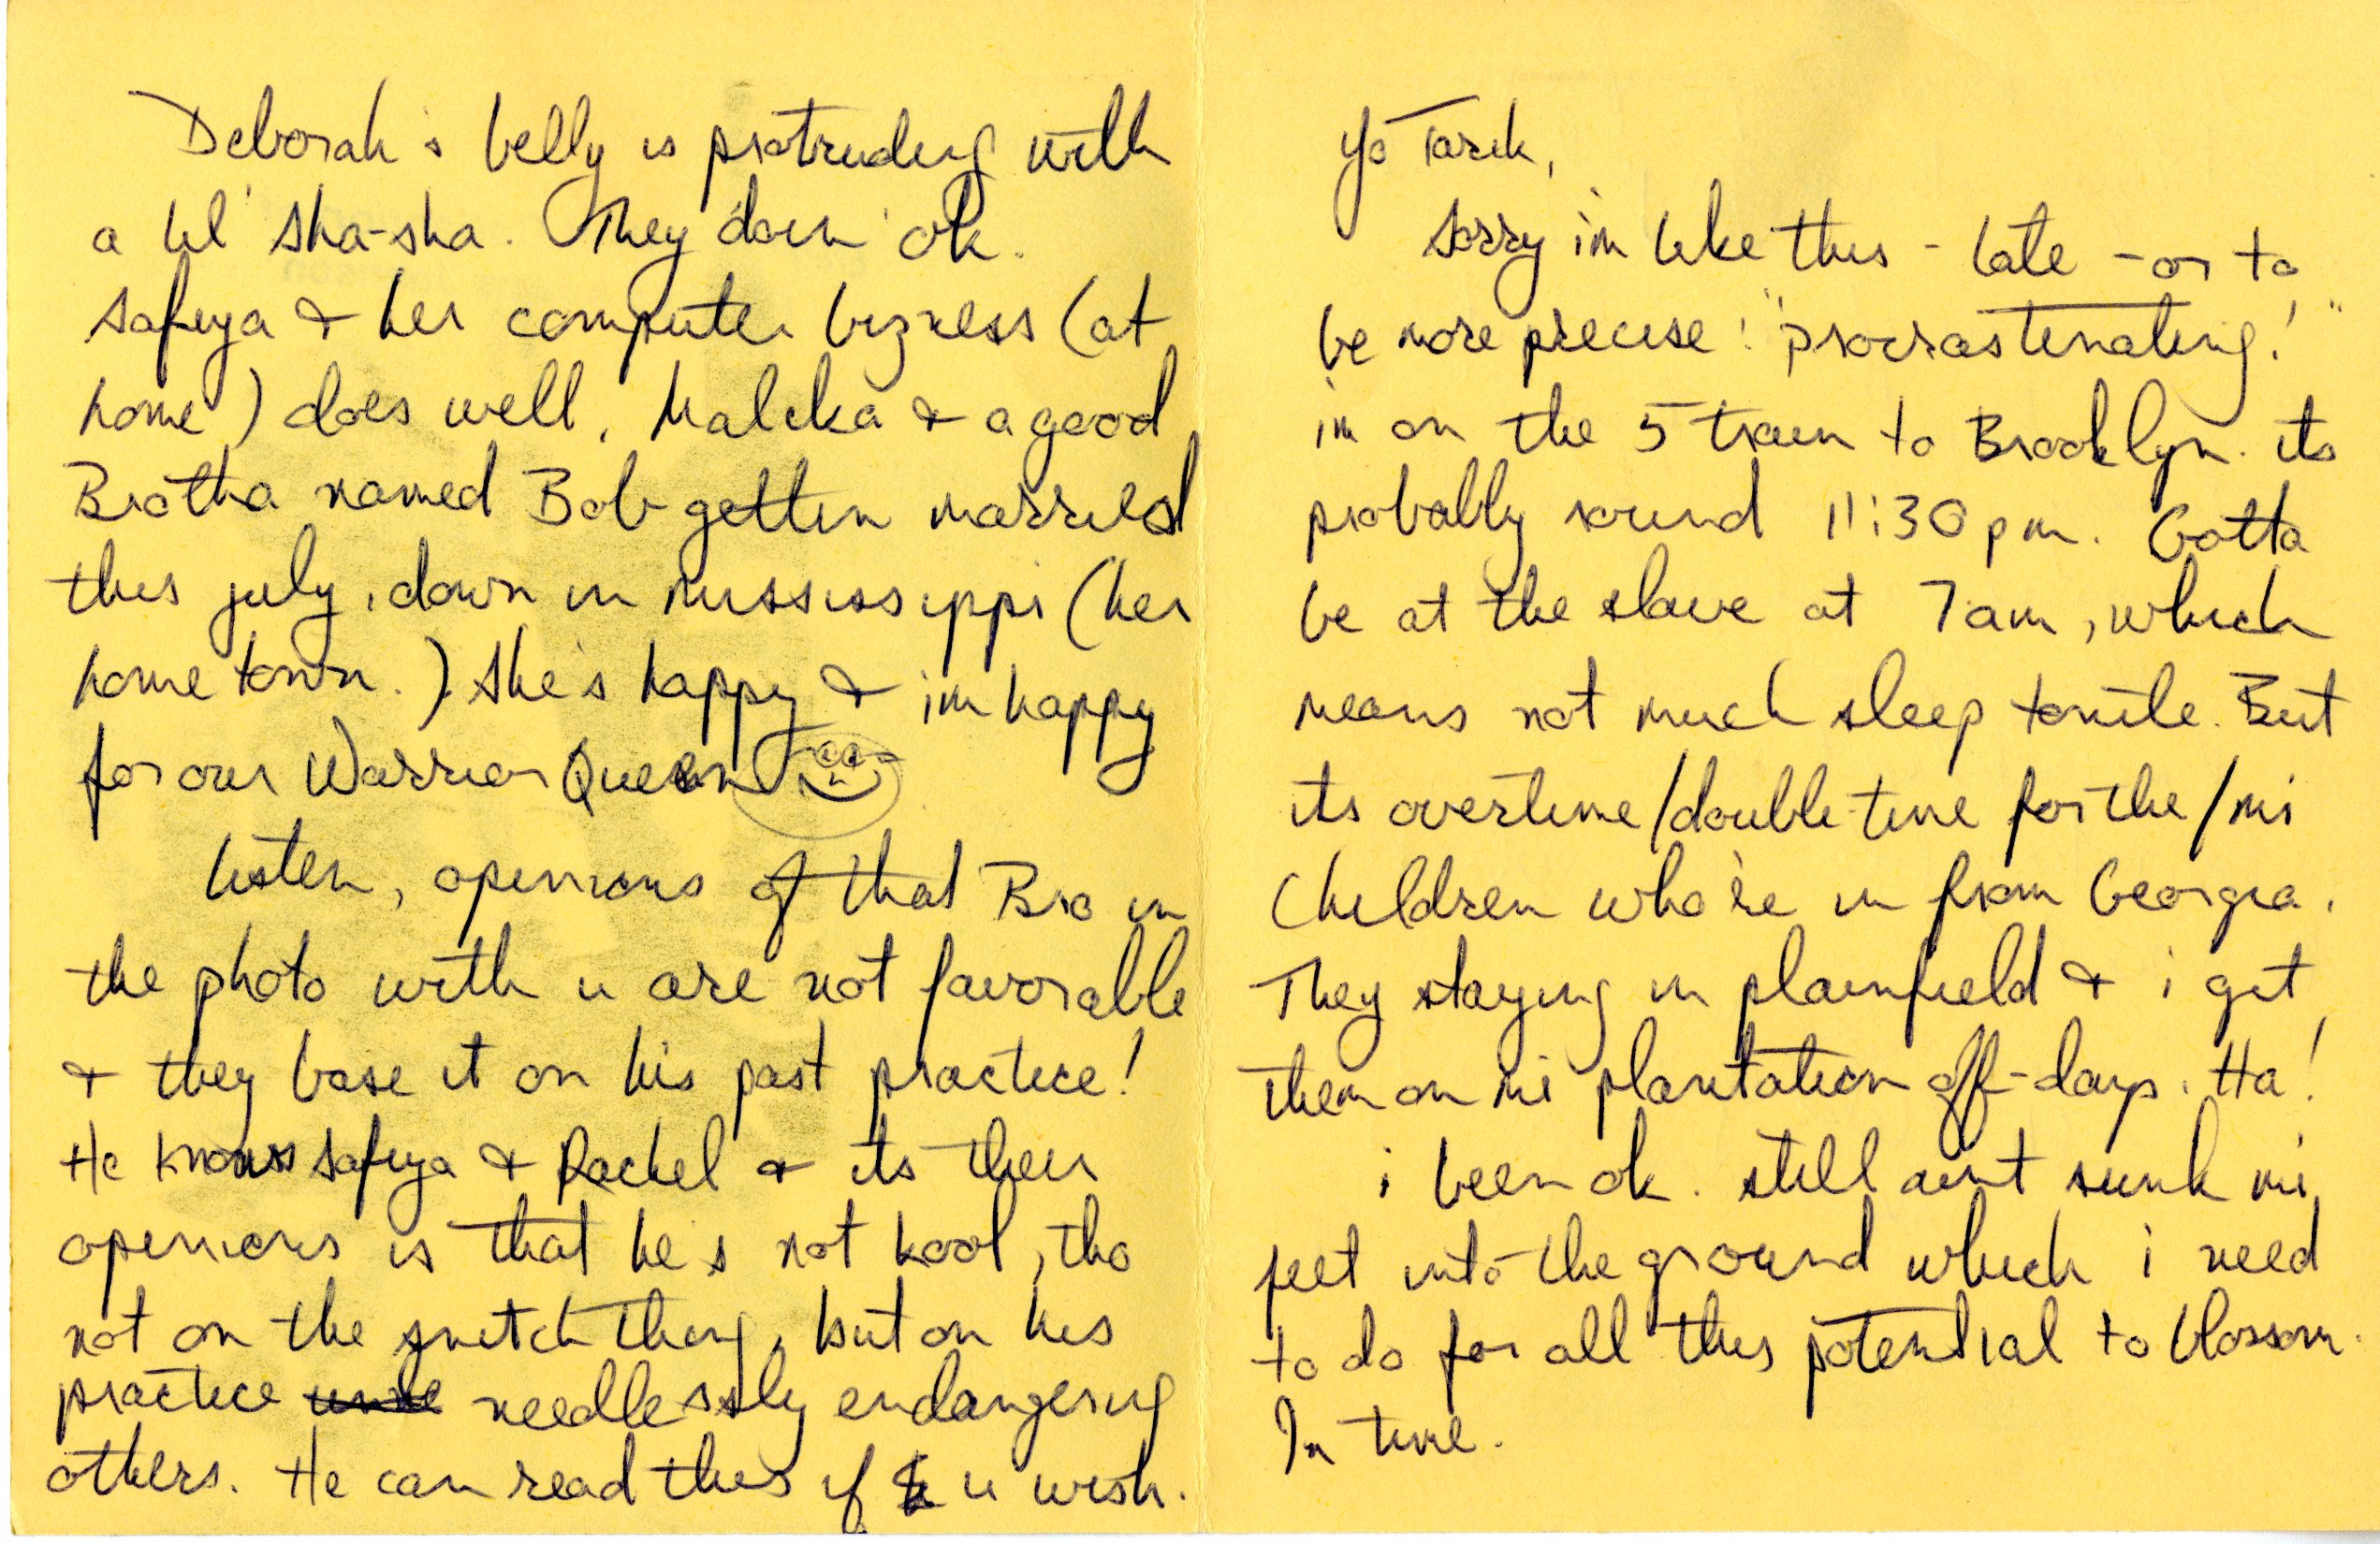 Deborah's belly is protruding with
a lil' sha-sha. They doin' ok.
Safiya & her computer bizness (at
home) does well. Maleka & a good
Brotha named Bob gettin married
this july, down in mississippi (her
home town.) She's happy & i'm happy
for our Warrior Queen
Listen, opinions of that Bro in
the photo with u are not favorable
& they base it on his past practice!
He knows Safiya & Rachel & its their
opinions is that he's not kool, tho
not on the snitch thing, but on his
practice needlessly endangering
others. He can read this if u wish.
Yo Tarik,
Sorry i'm like this - late - or to
be more precise: "procrastinating!"
i'm on the 5 train to Brooklyn. its
probably round 11:30 pm. Gotta
be at the slave at 7am, which
means not much sleep tonite. But
its overtime/double-time for the/mi
Children who're in from Georgia.
They staying in plainfield & i get
them on mi plantation off-days. Ha!
i been ok. still aint sunk mi
feet into the ground which i need
to do for all this potential to blossom.
In time.